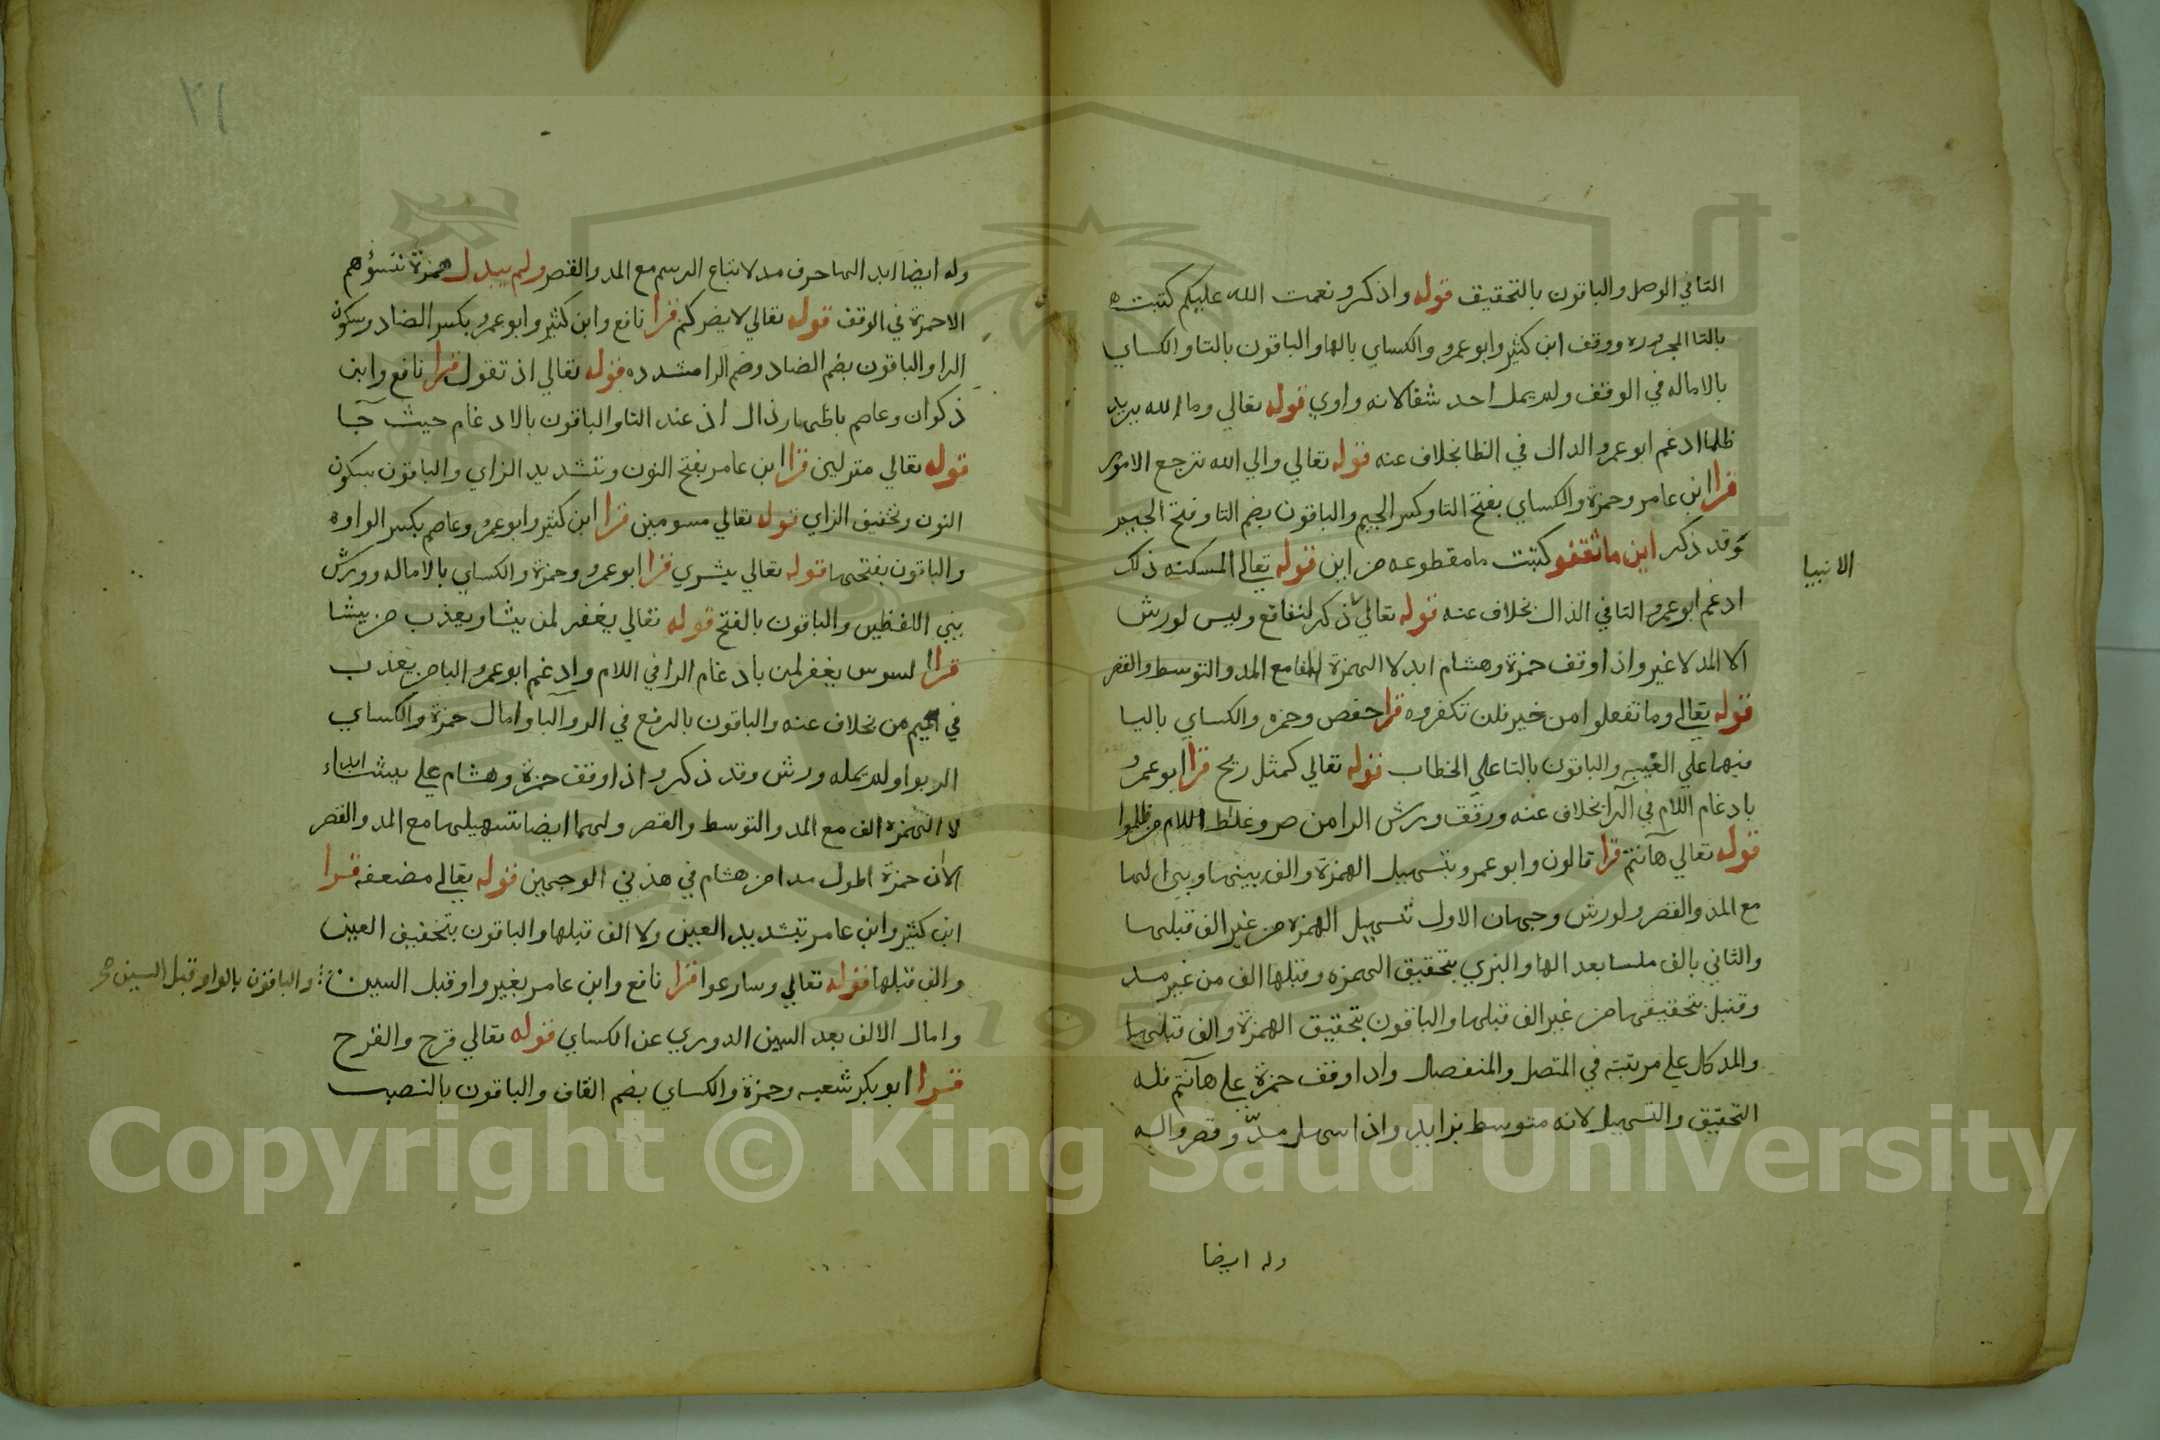 التا في الوصل والباقون بالتحقيق قوله واذكرو نعمت الله عليكم كتبت
بالتا المجروره ووقف ابن كثير وابو عمرو والكساي بالها والباقون بالتا والكساي
بالاماله في الوقف ولم يمل احد شفا لانه واوي قوله تعالي وما الله يريد
ظلما ادغم ابو عمرو الدال في الظا بخلاف عنه قوله تعالي والي الله ترجع الامور
قرا ابن عامر وحمزة والكساي بفتح التا وكسر الجيم والباقون بضم التا وفتح الجيم
وقد ذكر اين ما ثقفو كتبت ما مقطوعه من اين قوله تعالي المسكنه ذلك
الانبيا
ادغم ابو عمرو التا في الذال بخلاف عنه قوله تعالي ذكر لنافع وليس لورش
الا المد لا غير واذا وقف حمزة وهشام ابدلا الهمزة الفا مع المد والتوسط والقصر
قوله تعالي وما تفعلوا من خير فلن تكفروه قرا حفص وحمزه والكساي باليا
فيهما علي الغيبه والباقون بالتا علي الخطاب قوله تعالي كمثل ريح قرا ابو عمرو
بادغام اللام في الرا بخلاف عنه ورقق ورش الرا من صر وغلظ اللام من ظلموا
قوله تعالي هآنتم قرا قالون وابو عمرو بتسهيل الهمزة والف بينها وبين الها
مع المد والقصر ولورش وجهان الاول تسهيل الهمزه من غير الف قبلها
والثاني بالف ملسا بعد الها والبزي بتحقيق الهمزه وقبلها الف من غير مد
وقنبل بتحقيقها من غير الف قبلها والباقون بتحقيق الهمزة والف قبلها
والمد كل علي مرتبته في المتصل والمنفصل واذا وقف حمزة علي هآنتم فله
التحقيق والتسهيل لانه متوسط بزايد واذا سهل مدّ وقصر واليه
وله ايضا
٢١
وله ايضا ابدالها حرف مد لاتباع الرسم مع المد والقصر ولم يبدل همزة تسؤهم
الا حمزة في الوقف قوله تعالي لا يضركم قرا نافع وابن كثير وابو عمرو بكسر الضاد وسكون
الرا والباقون بضم الضاد وضم الرا مشدده قوله تعالي اذ تقول قرا نافع وابن
ذكوان وعاصم باظهار ذال اذ عند التا والباقون بالادغام حيث جا
قوله تعالي منزلين قرا ابن عامر بفتح النون وتشديد الزاي والباقون بسكون
النون وتخفيف الزاي قوله تعالي مسومين قرا ابن كثير وابو عمرو وعاصم بكسر الواو
والباقون بفتحها قوله تعالي بشري قرا ابو عمرو وحمزة والكساي بالاماله وورش
بين اللفظين والباقون بالفتح قوله تعالي يغفر لمن يشا ويعذب من يشا
قرا السوسي يغفر لمن بادغام الرا في اللام وادغم ابو عمرو البا من يعذب
في الميم من بخلاف عنه والباقون بالرفع في الرا والبا وامال حمزة والكساي
الربوا ولم يمله ورش وقد ذكر واذا وقف حمزة وهشام علي يشاء ابد
لا الهمزه الف مع المد والتوسط والقصر ولهما ايضا تسهيلها مع المد والقصر
الا ان حمزة اطول مدا من هشام في هذين الوجهين قوله تعالي مضعفه قرا
ابن كثير وابن عامر بتشديد العين ولا الف قبلها والباقون بتخفيف العين
والف قبلها قوله تعالي وسارعوا قرا نافع وابن عامر بغير واو قبل السين
والباقون بالواو قبل السين صح
وامال الالف بعد السين الدوري عن الكساي قوله تعالي قرح والقرح
قرا ابو بكر شعبه وحمزة والكساي بضم القاف والباقون بالنصب
Copyright © King Saud University